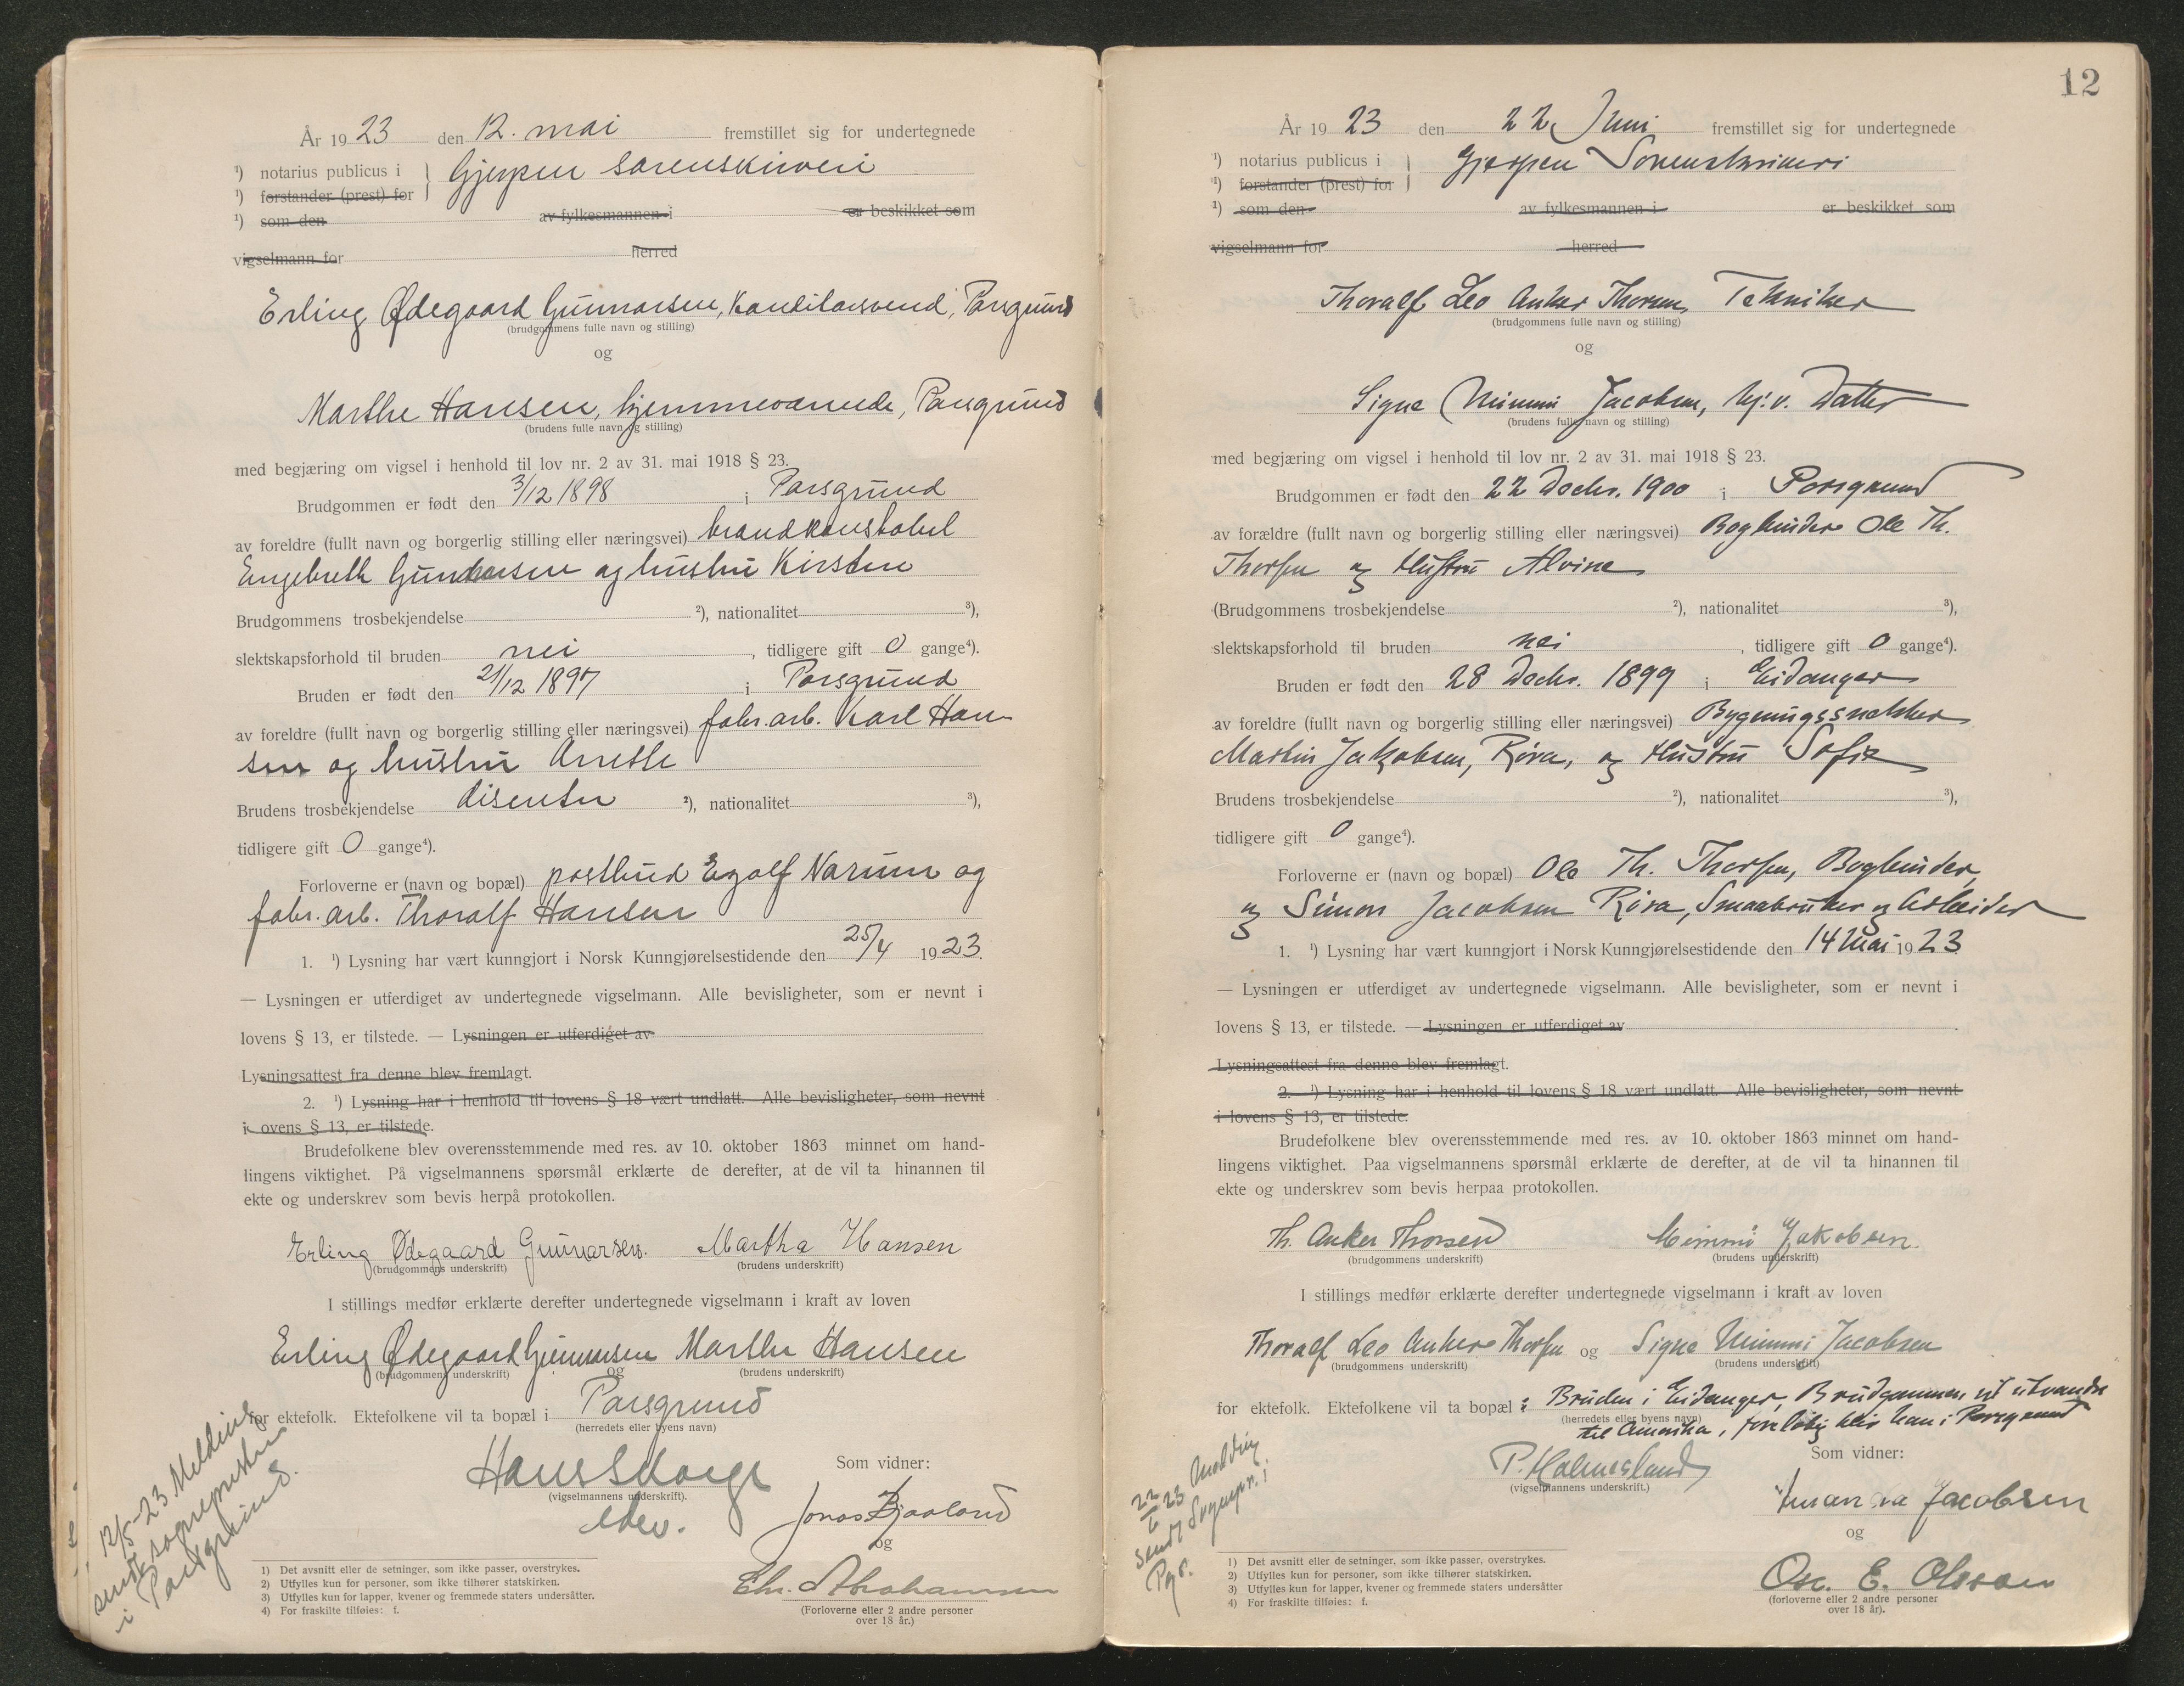 År 1923 den 12. mai fremstillet sig for undertegnede
¹) notarius publicus i } Gjerpen sorenskriveri
¹) forstander (prest) for
¹) som den av fylkesmannen i er beskikket som
vigselmann for herred
Erling Ødegaard Gunnarsen, Konditorsvend, Porsgrund
(brudgommens fulle navn og stilling)
og
Marthe Hansen, hjemmeværende, Porsgrund
(brudens fulle navn og stilling)
med begjæring om vigsel i henhold til lov nr. 2 av 31. mai 1918 § 23.
Brudgommen er født den 3/12 1898 i Porsgrund
av foreldre (fullt navn og borgerlig stilling eller næringsvei) brandkonstabel
Engebreth Gunnarsen og hustru Kirsten
Brudgommens trosbekjendelse ²), nationalitet ³),
slektskapsforhold til bruden nei , tidligere gift 0 gange⁴).
Bruden er født den 21/12 1897 i Porsgrund
av foreldre (fullt navn og borgerlig stilling eller næringsvei) fabr. arb. Karl Han-
sen og hustru Anethe
Brudens trosbekjendelse disenter ²), nationalitet ³),
tidligere gift 0 gange⁴).
Forloverne er (navn og bopæl) postbud Egolf Narum og
fabr. arb. Thoralf Hansen
1. ¹) Lysning har vært kunngjort i Norsk Kunngjørelsestidende den 25/4 1923.
— Lysningen er utferdiget av undertegnede vigselmann. Alle bevisligheter, som er nevnt i
lovens § 13, er tilstede. — Lysningen er utferdiget av
Lysningsattest fra denne blev fremlagt.
2. ¹) Lysning har i henhold til lovens § 18 vært undlatt. Alle bevisligheter, som nevnt
i ovens § 13, er tilstede.
Brudefolkene blev overensstemmende med res. av 10. oktober 1863 minnet om hand-
lingens viktighet. På vigselmannens spørsmål erklærte de derefter, at de vil ta hinannen til
ekte og underskrev som bevis herpå protokollen.
Erling Ødegaard Gunnarsen. Martha Hansen
(brudgommens underskrift) (brudens underskrift)
I stillings medfør erklærte derefter undertegnede vigselmann i kraft av loven
Erling Ødegaard Gunnarsen og Marthe Hansen
(brudgommens underskrift) (brudens underskrift)
for ektefolk. Ektefolkene vil ta bopæl i Porsgrund
(herredets eller byens navn)
Hans
(vigselmannens underskrift).
Som vidner:
Jonas Bjaaland
og
Chr. Abrahamsen
(Forloverne eller 2 andre personer
over 18 år.)
12/5-23 Melding
sendt sognepresten
i Porsgrund.
1) Det avsnitt eller de setninger, som ikke passer, overstrykes.
2) Utfylles kun for personer, som ikke tilhører statskirken.
3) Utfylles kun for lapper, kvener og fremmede staters undersåtter.
4) For fraskilte tilføies: f.
12
År 1923 den 22 Juni fremstillet sig for undertegnede
¹) notarius publicus i } Gjerpen Sorenskriveri
¹) forstander (prest) for
¹) som den av fylkesmannen i er beskikket som
vigselmann for herred
Thoralf Leo Anker Thorsen, Tekniker
(brudgommens fulle navn og stilling)
og
Signe Mimmi Jacobsen, hj. v. Datter
(brudens fulle navn og stilling)
med begjæring om vigsel i henhold til lov nr. 2 av 31. mai 1918 § 23.
Brudgommen er født den 22 Decbr. 1900 i Porsgrund
av forældre (fullt navn og borgerlig stilling eller næringsvei) Bogbinder Ole Th.
Thorsen og Hustru Alvine
(Brudgommens trosbekjendelse ²), nationalitet ³),
slektskapsforhold til bruden nei , tidligere gift 0 gange⁴).
Bruden er født den 28 Decbr. 1899 i Eidanger
av foreldre (fullt navn og borgerlig stilling eller næringsvei) Bygningssnekker
Martin Jakobsen, Røra, og Hustru Sofie
Brudens trosbekjendelse ²), nationalitet ³),
tidligere gift 0 gange⁴).
Forloverne er (navn og bopæl) Ole Th. Thorsen, Bogbinder,
og Simon Jacobsen Røra, Smaabruker og Arbeider
1. ¹) Lysning har vært kunngjort i Norsk Kunngjørelsestidende den 14 Mai 1923
— Lysningen er utferdiget av undertegnede vigselmann. Alle bevisligheter, som er nevnt i
lovens § 13, er tilstede. — Lysningen er utferdiget av .
Lysningsattest fra denne blev fremlagt.
2. ¹) Lysning har i henhold til lovens § 18 vært undlatt. Alle bevisligheter, som nevnt
i lovens § 13, er tilstede.
Brudefolkene blev overensstemmende med res. av 10. oktober 1863 minnet om hand-
lingens viktighet. Paa vigselmannens spørsmål erklærte de derefter, at de vil ta hinannen til
ekte og underskrev som bevis herpaa protokollen.
Th. Anker Thorsen Mimmi Jakobsen.
(brudgommens underskrift) (brudens underskrift)
I stillings medfør erklærte derefter undertegnede vigselmann i kraft av loven
Thoralf Leo Anker Thorsen og Signe Mimmi Jacobsen
(brudgommens underskrift) (brudens underskrift)
for ektefolk. Ektefolkene vil ta bopæl : Bruden i Eidanger, Brudgommen vil utvandre
(herredets eller byens navn)
til Amerika, foreløbig blir han i Porsgrund
P. Holmesland
(vigselmannens underskrift.)
Som vidner:
Jacobsen
og
Osc. E. Olsson
(forloverne eller 2 andre personer
over 18 år).
22/6 23 Melding
sendt Sognepr. i
Pgr.
1) Det avsnitt eller de setninger, som ikke passer, overstrykes.
2) Utfylles kun for personer, som ikke tilhører statskirken.
3) Utfylles kun for lapper, kvener og fremmede staters undersåtter
4) For fraskilte tilføies: f.